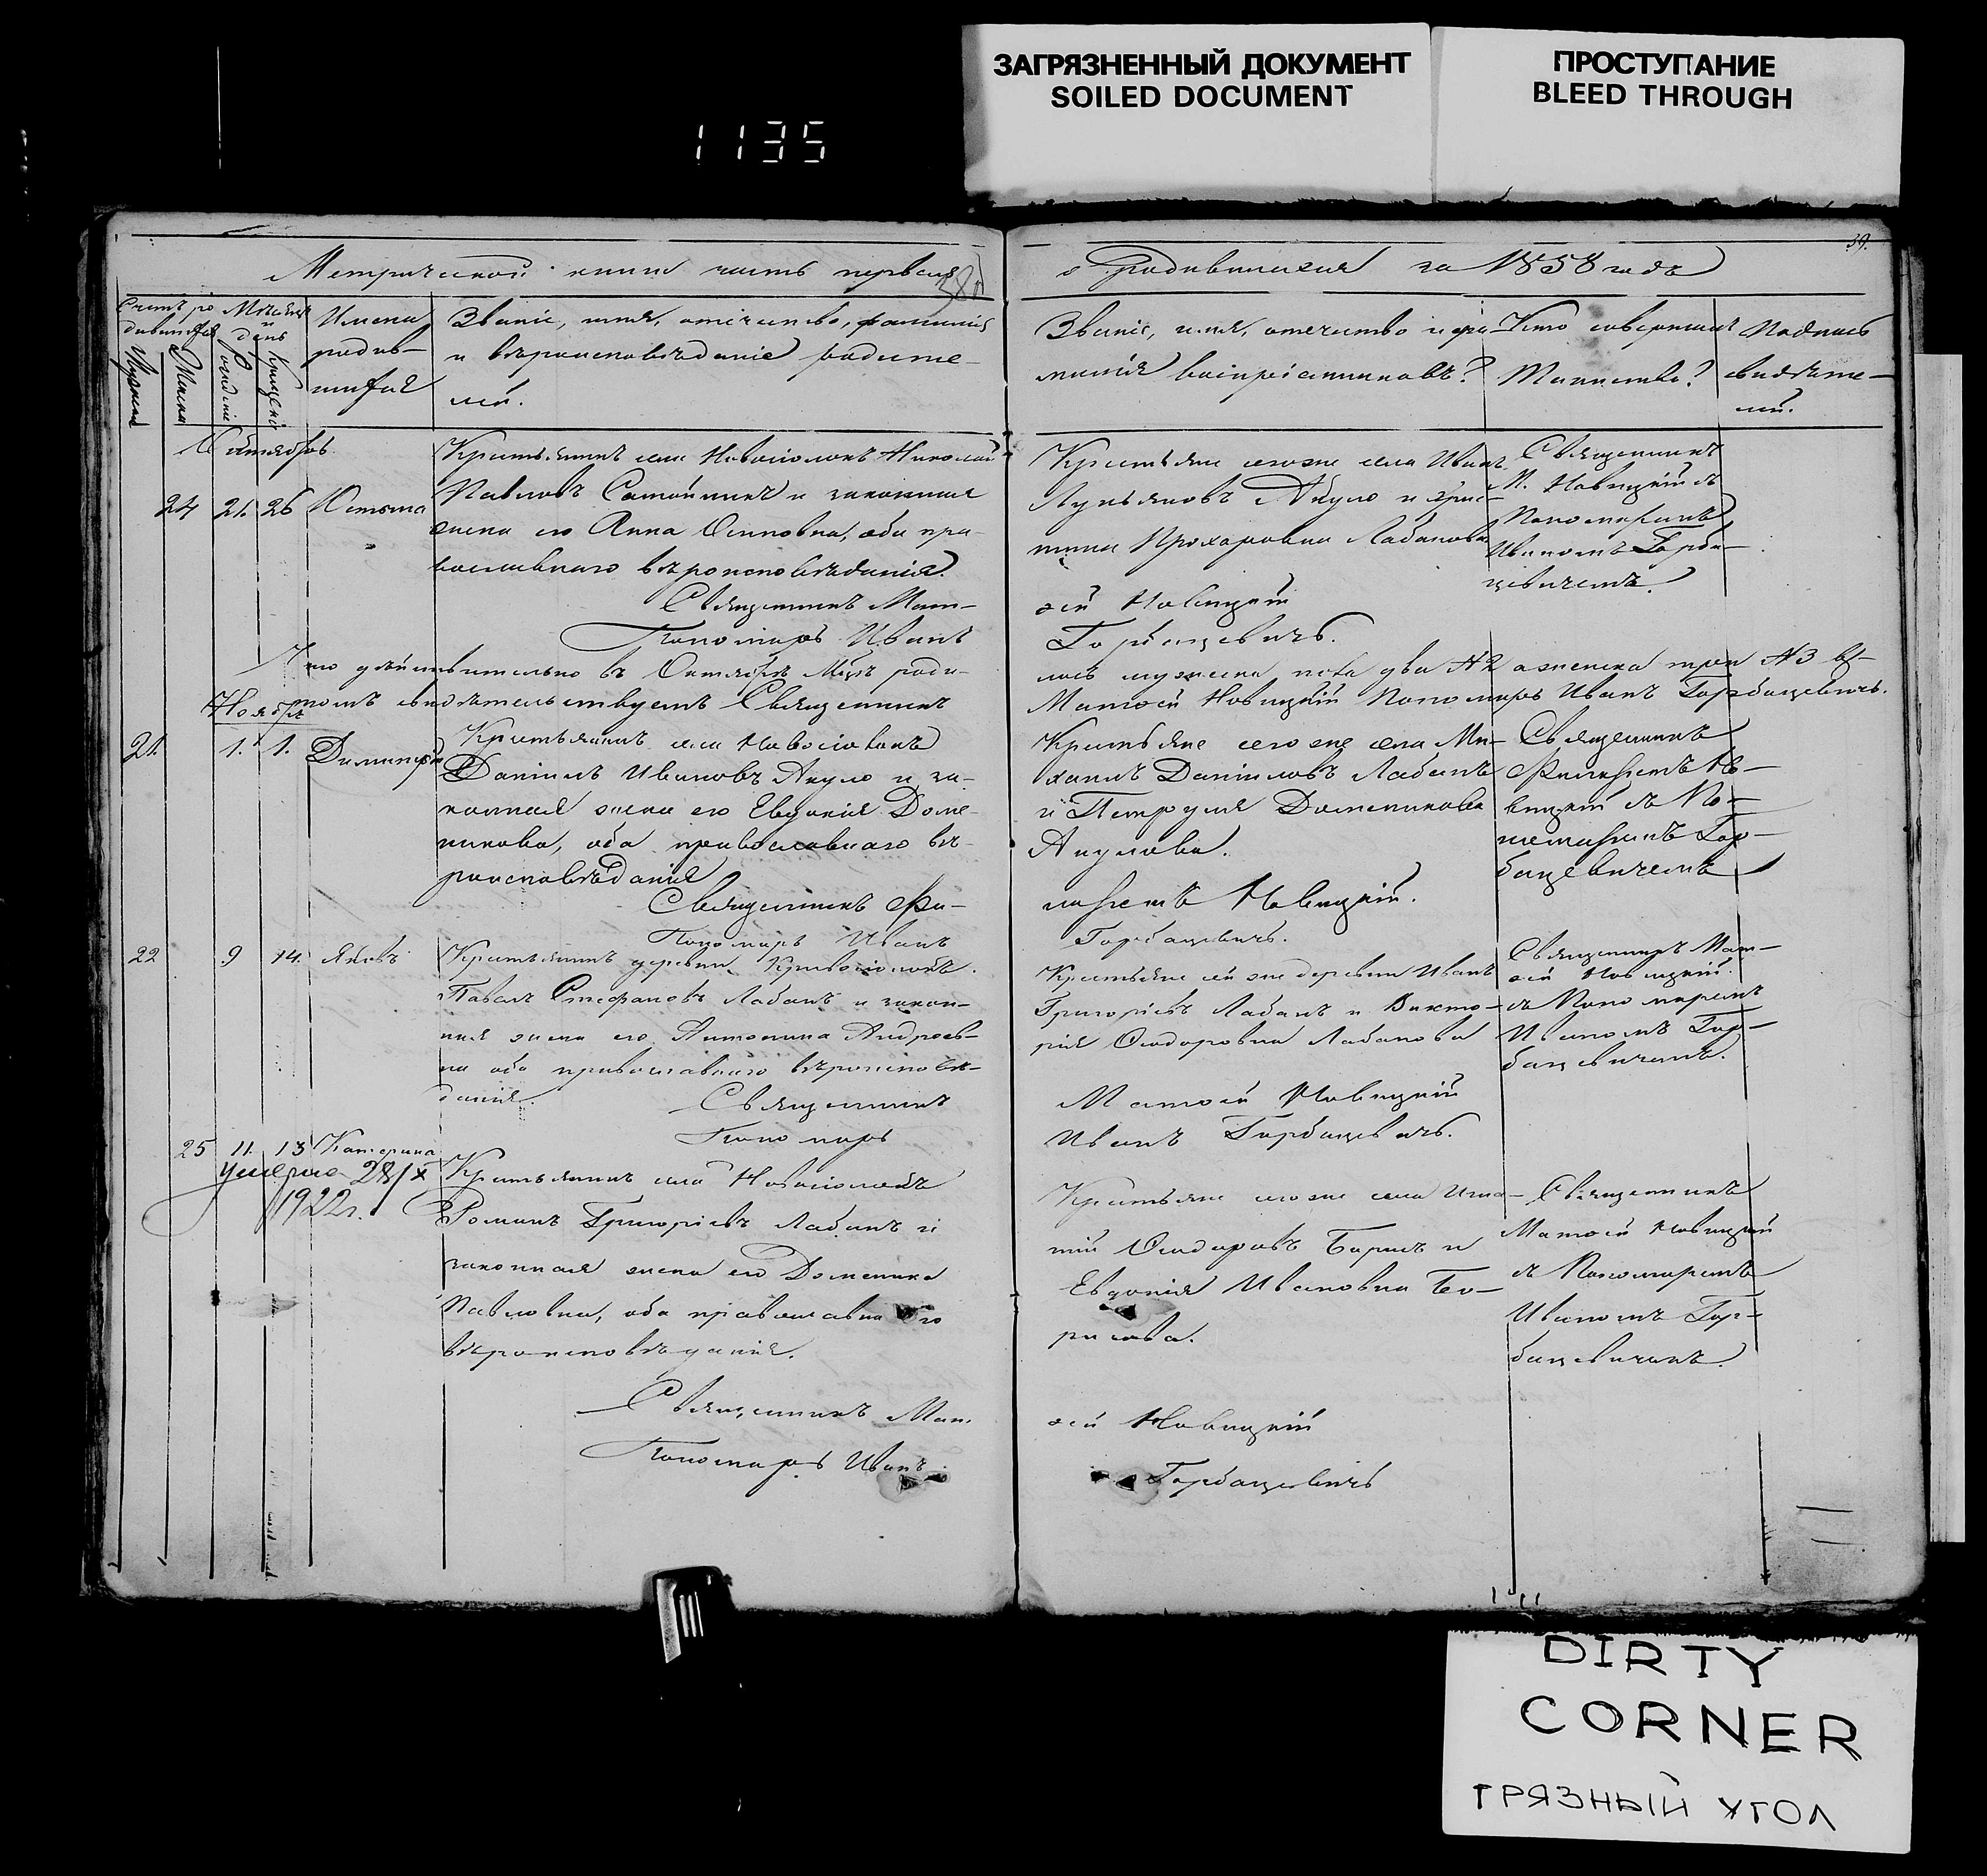 ЗАГРЯЗНЕННЫЙ ДОКУМЕНТ
SOILED DOCUMENT
ПРОСТУПАНИЕ
BLEED THROUGH
1135
39.
Метрической книги часть первая
о родившихся за 1858 годъ
Мѣсяцъ
и
день
Имена
родив-
шихся
Званіе, имя, отечество, фамилія
и вѣроисповѣданіе родите-
лей.
Званіе, имя, отечество и фа-
милія воспріемниковъ?
Кто совершилъ
Таинство?
Подпись
свидѣте-
лей.
Октябрь
24 21. 26
Крестьянинъ села Новоселокъ Николай
Павловъ и законная
жена его Анна Осиповна, оба пра-
вославнаго вѣроисповѣданія.
Священникъ Мат-
Пономарь Иванъ
Крестьяне того же села Иванъ
Лукьяновъ Акуло и Хрис-
тина Прохоровна Лабанова
ѳей Новицкій
Горбацевичъ.
Священникъ
М. Новицкій съ
Пономаремъ
Иваномъ Горба-
цевичемъ.
Что дѣйствительно въ Октябрѣ Мцѣ роди-
лось мужеска пола два №2 а женска три №3 въ
томъ свидѣтельствуетъ Священникъ
Матѳей Новицкій Пономарь Иванъ Горбацевичъ.
Ноябрь
21. 1. 1. Димитрій
Крестьянинъ села Новоселокъ
Даніилъ Ивановъ Акуло и за-
конная жена его Евдокія Доме-
никова, оба православнаго вѣ-
роисповѣданія
Священникъ Фи-
Пономарь Иванъ
Крестьяне того же села Ми-
хаилъ Даніиловъ Лабанъ
и Петруля Доменикова
Акулова.
ларетъ Новицкій.
Горбацевичъ.
Священникъ
Филаретъ Но-
вицкій съ По-
номаремъ Гор-
бацевичемъ
22 9 14. Яковъ
Крестьянинъ деревни
Павелъ Стефановъ Лабанъ и закон-
ная жена его Антонина Андреев-
на оба православнаго вѣроисповѣ-
данія.
Священникъ
Пономарь
Крестьяне сей же деревни Иванъ
Григорьевъ Лабанъ и Викто-
рія Сидоровна Лабанова
Матѳей Новицкій
Иванъ Горбацевичъ.
Священникъ Мат-
ѳей Новицкій
съ Пономаремъ
Иваномъ Гор-
бацевичемъ.
25 11. 13 Катерина
умерла 28/X
1922г.
Крестьянинъ села Новоселокъ
Романъ Григорьевъ Лабанъ и
законная жена его Доменика
Павловна, оба православнаго
вѣроисповѣданія.
Священникъ Мат-
Пономарь Иванъ
Крестьяне того же села Игна-
тій Сидоровъ Борисъ и
Евдокія Ивановна Бо-
рисова.
ѳей Новицкій
Горбацевичъ
Священникъ
Матѳей Новицкій
съ Пономаремъ
Иваномъ Гор-
бацевичемъ.
DIRTY
CORNER
ГРЯЗНЫЙ УГОЛ